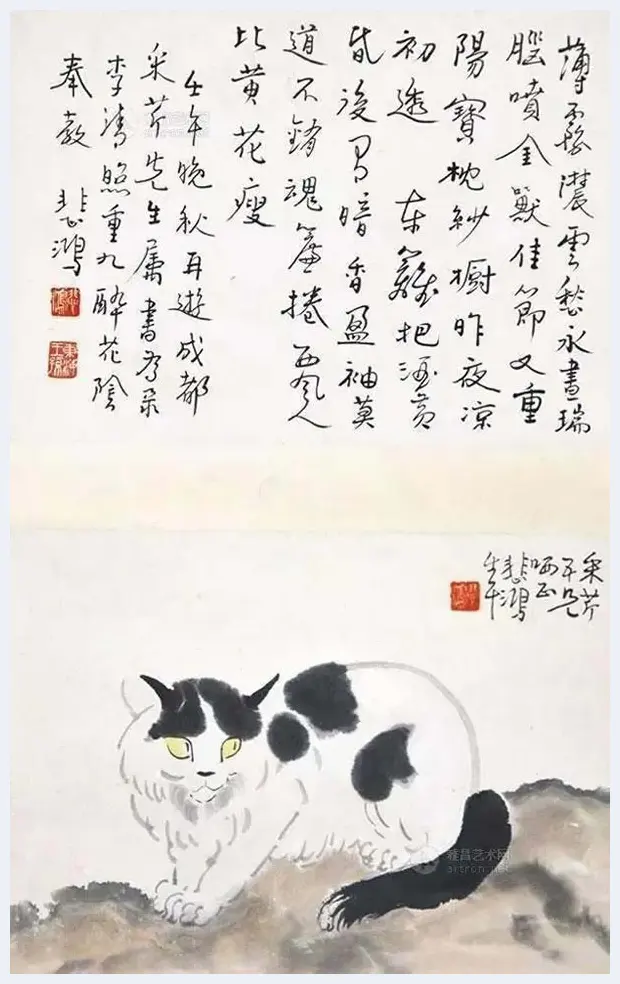 薄霧濃雲愁永晝瑞
腦噴金獸佳節又重
陽寶枕紗橱昨夜凉
初透 東籬把酒黄
昏後有暗香盈袖莫
道不銷魂簾捲西風人
比黄花瘦
壬午晚秋再遊成都
采芹先生属書為录
李清照重九醉花陰
奉教 悲鴻
悲鴻
東海王孫
采芹
兄
哂正
悲鴻
壬午
雅昌艺术网
artron.net